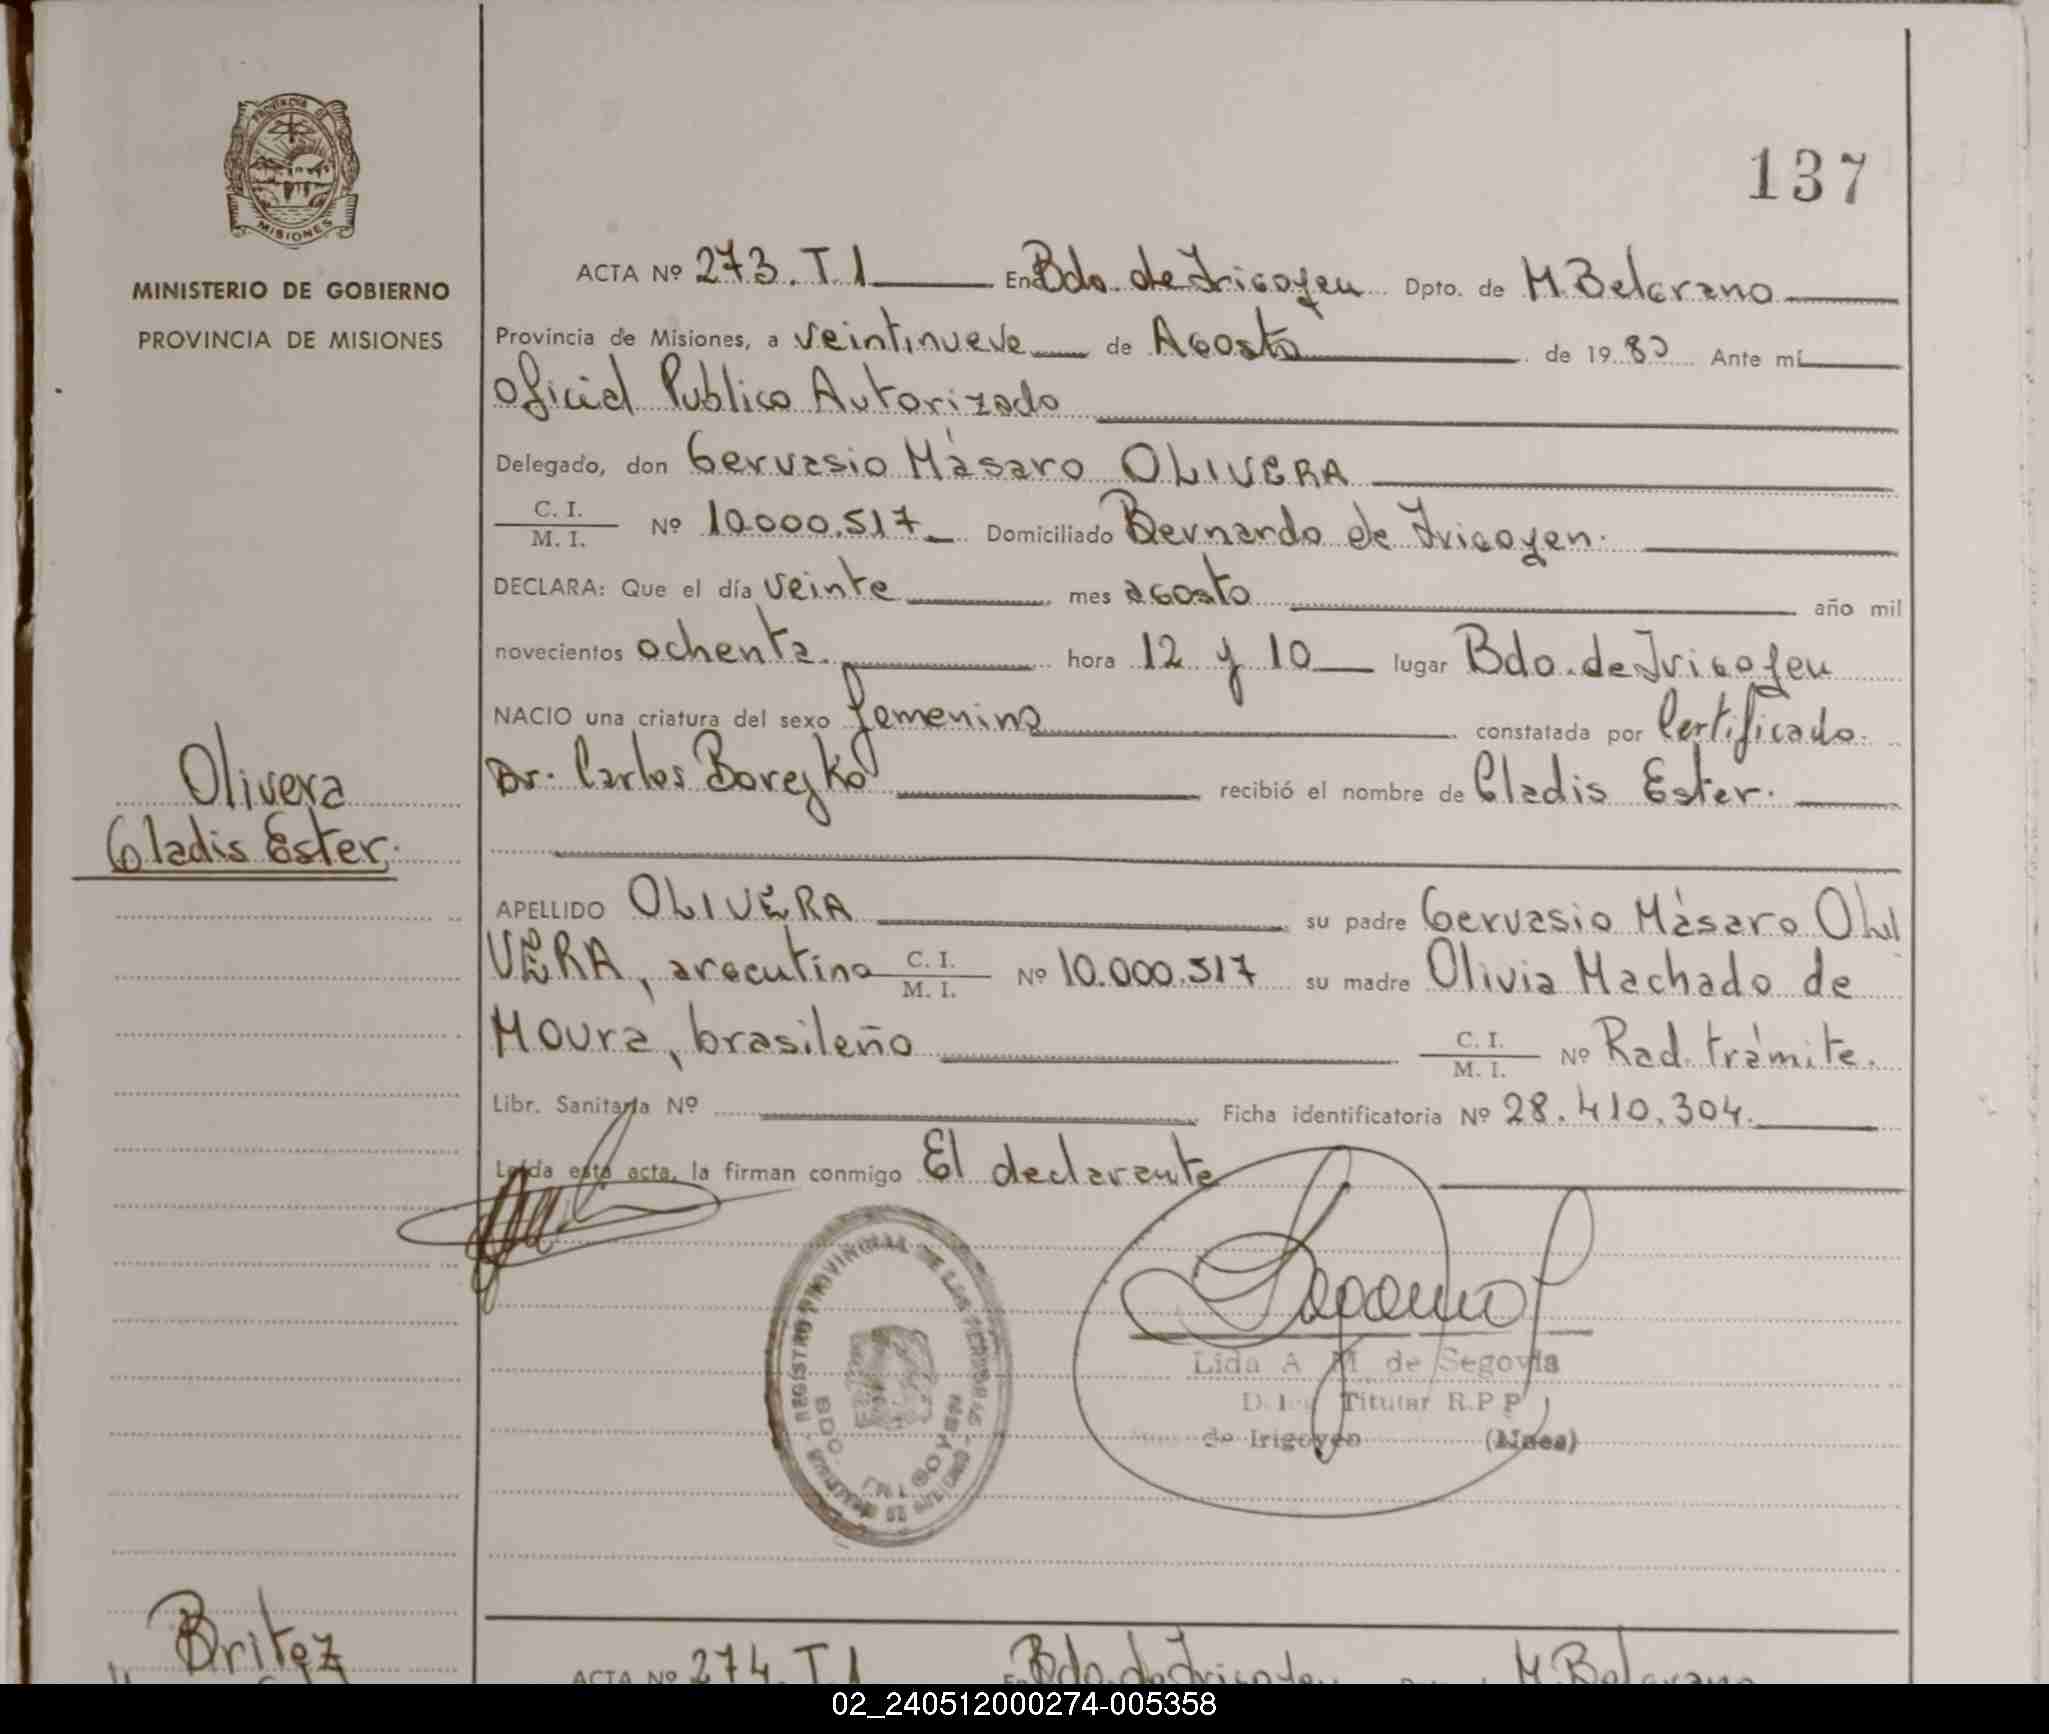 PROVINCIA DE
MISIONES
MINISTERIO DE GOBIERNO
PROVINCIA DE MISIONES
137
ACTA Nº 273. T. 1 En Bdo. de Irigoyen Dpto. de M. Belgrano
Provincia de Misiones, a veintinueve de Agosto de 19 80 Ante mí
Oficial Publico Autorizado
Delegado, don Gervasio Másaro OLIVERA
C. I.
M. I. Nº 10.000.517 Domiciliado Bernardo de Irigoyen.
DECLARA: Que el día veinte mes agosto año mil
novecientos ochenta. hora 12 y 10 lugar Bdo. de Irigoyen
NACIO una criatura del sexo femenino constatada por Certificado.
Dr. Carlos Borejko recibió el nombre de Gladis Ester.
Olivera
Gladis Ester.
APELLIDO OLIVERA su padre Gervasio Másaro OLI
VERA, argentino C. I. M. I. Nº 10.000.517 su madre Olivia Machado de
Moura, brasileño C. I. M. I. Nº Rad. trámite.
Libr. Sanitaria Nº Ficha identificatoria Nº 28.410.304.
Leída esta acta, la firman conmigo El declarante
REGISTRO PROVINCIAL DE LAS PERSONAS
BDO. IRIGOYEN
Lida A M de Segovia
Titular R.P.P
de Irigoyen (Mnes)
Britez
ACTA Nº 274. T 1 En Bdo. de Irigoyen M. Belgrano
02_240512000274-005358